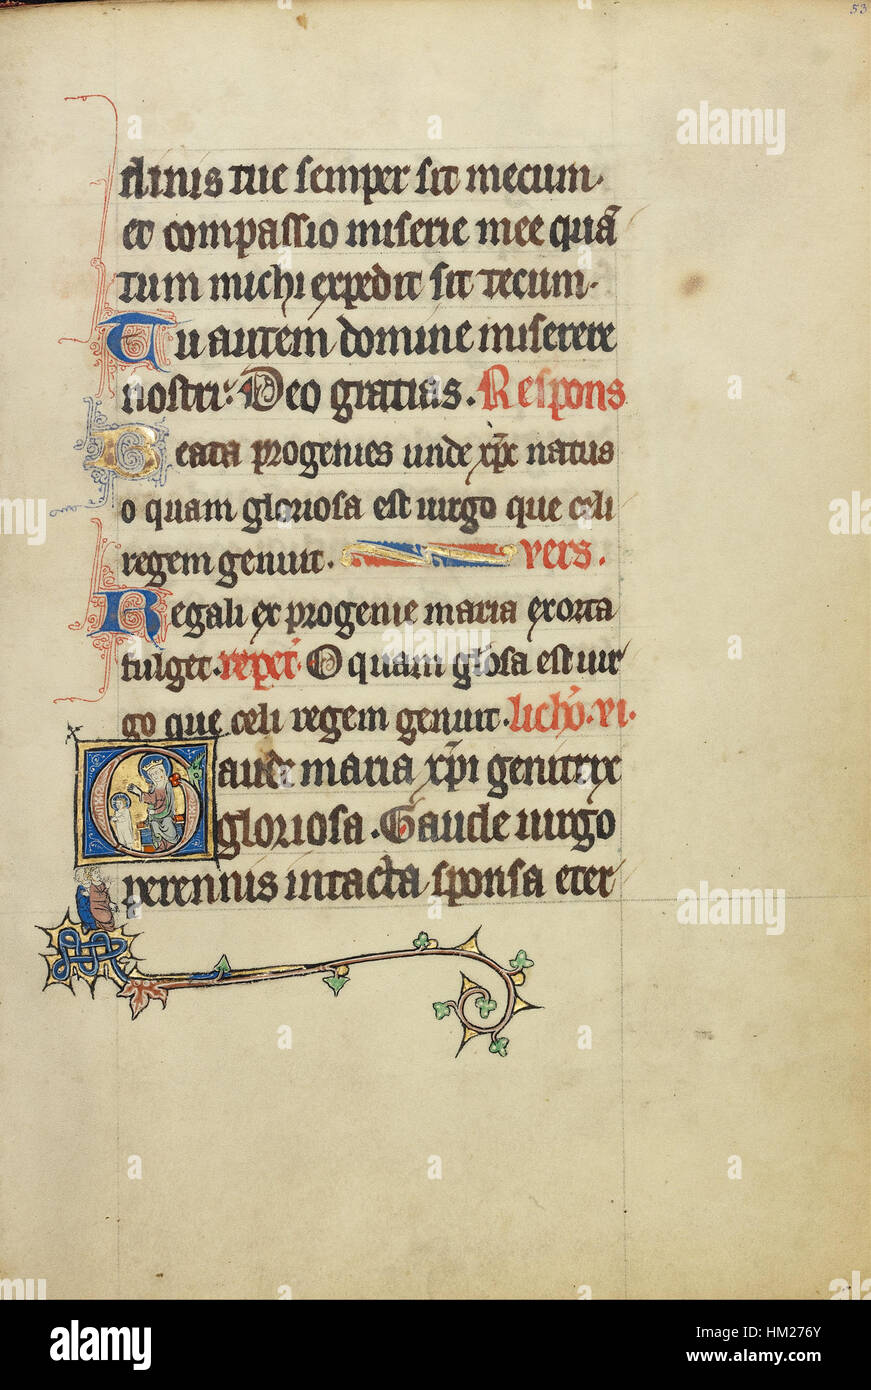 53
dinis tue semper sit mecum.
et compassio miserie mee quā
tum michi expedit sit tecum.
Tu autem domine miserere
nostri. Deo gratias. Respons
Beata progenies unde xp̄c natus
o quam gloriosa est uirgo que celi
regem genuit. vers.
Regali ex progenie maria exorta
fulget. repet'. O quam glōsa est uir
go que celi regem genuit. lichō. vi.
Gaude maria xp̄i genitrix
gloriosa. Gaude uirgo
perennis intacta sponsa eter
alamy
Image ID: HM276Y
www.alamy.com